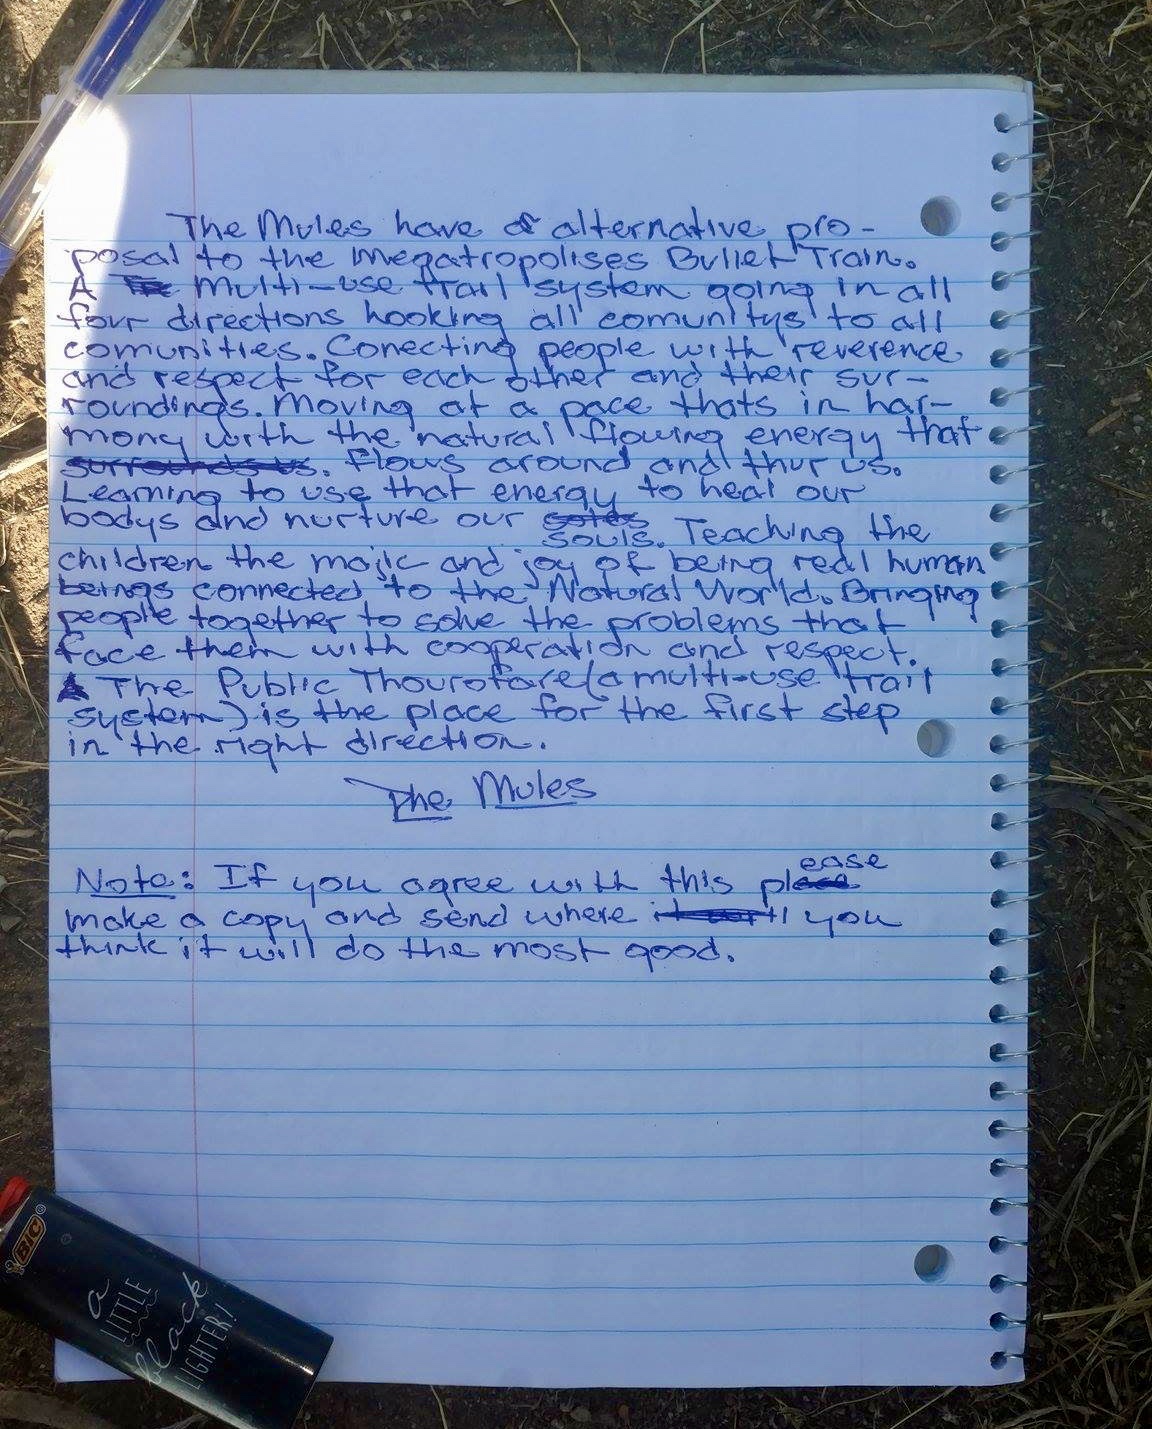 The Mules have a alternative pro-
posal to the Megatropolises Bullet Train.
A multi-use trail system going in all
four directions hooking all comunitys to all
comunities. Conecting people with reverence
and respect for each other and their sur-
roundings. Moving at a pace thats in har-
mony with the natural flowing energy that
surrounds us. flows around and thur us.
Learning to use that energy to heal our
bodys and nurture our
souls. Teaching the
children the majic and joy of being real human
beings connected to the Natural World. Bringing
people together to solve the problems that
face them with cooperation and respect.
The Public Thourofare (a multi-use trail
system) is the place for the first step
in the right direction.
The Mules
Note: If you agree with this please
make a copy and send where you
think it will do the most good.
BIC
a
LITTLE
black
LIGHTER!